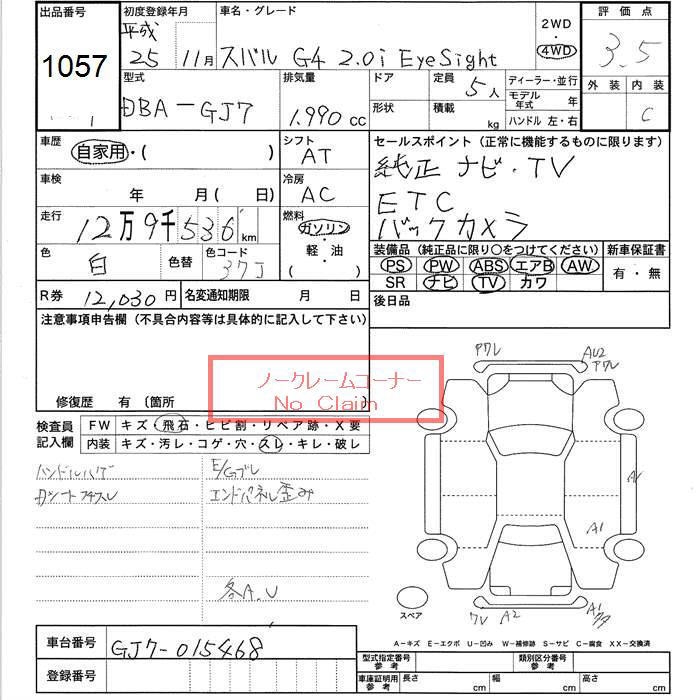 出品番号
1057
初度登録年月
平成
25 11月
車名・グレード
スバル G4 2.0i EyeSight
2WD
・
4WD
評価点
3.5
外装 内装
C
型式
DBA-GJ7
排気量
1.990 cc
ドア
形状
定員
5人
積載
kg
ディーラー・並行
モデル年式 年
ハンドル 左・右
車歴
自家用・( )
シフト
AT
セールスポイント(正常に機能するものに限ります)
純正 ナビ・TV
ETC
バックカメラ
車検
年 月(日)
冷房
AC
走行
12万9千536 km
燃料
ガソリン
・
軽・油
( )
色
白
色替
色コード
37J
装備品(純正品に限り○をつけてください)
PS PW ABS エアB AW
SR ナビ TV カワ
新車保証書
有・無
R券 12,030円
名変通知期限 月 日
後日品
注意事項申告欄(不具合内容等は具体的に記入して下さい)
ノークレームコーナー
No Claim
修復歴 有 〔箇所
検査員
記入欄
FW キズ・飛石・ヒビ割・リペア跡・X要
内装 キズ・汚レ・コゲ・穴・スレ・キレ・破レ
ハンドルハゲ
E/Gブレ
エンドパネル歪み
各A.U
アワレ
AU2
アワレ
A1
A1
スペア
ワレ A2
A1
A-キズ E-エクボ U-凹み W-補修跡 S-サビ C-腐食 XX-交換済
車台番号
GJ7-015468
登録番号
型式指定番号
参考
類別区分番号
参考
車庫証明用
参考
長さ cm
幅 cm
高さ cm